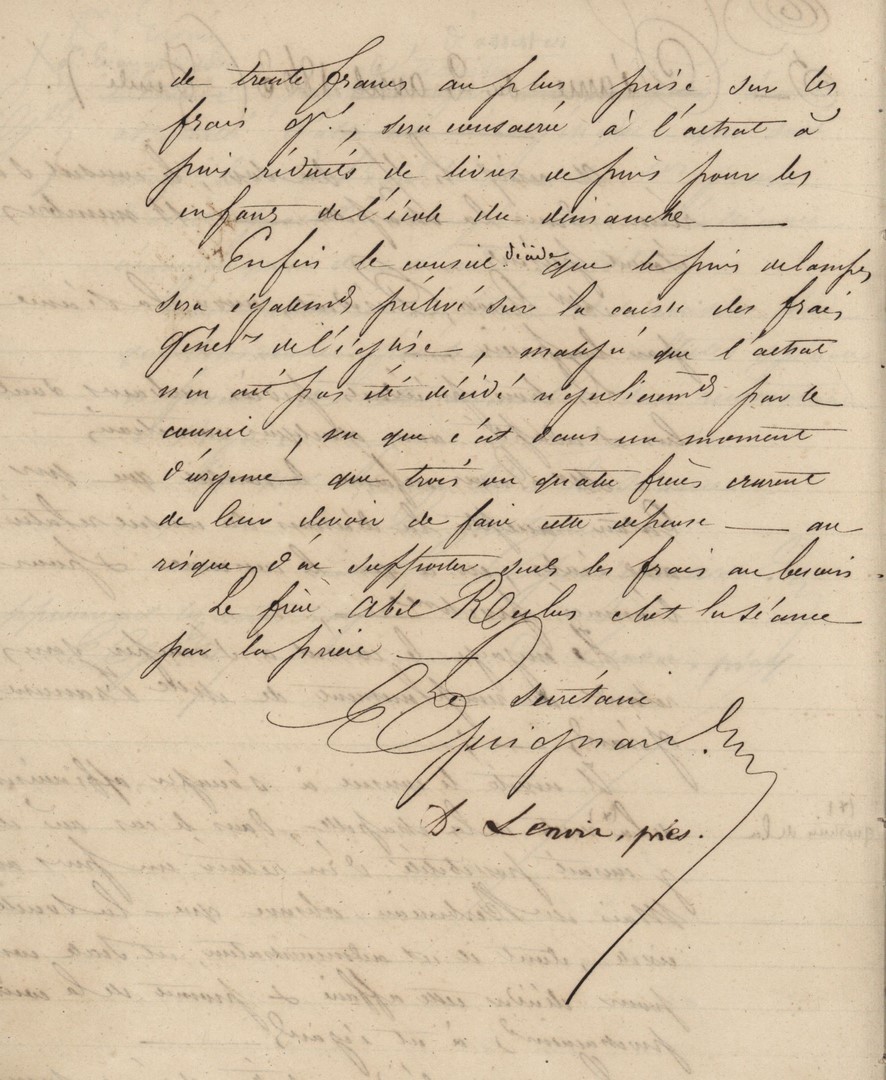 de trente francs au plus prise sur les
frais gx., sera consacrée à l'achat à
prix réduits de livres de prix pour les
enfans de l'école du dimanche —
Enfin le conseil décide que le prix de lampes
sera égalemt prélevé sur la caisse des frais
génér. de l'église, malgré que l'achat
n'en ait pas été décidé régulièremt par le
conseil, vu que c'est dans un moment
d'urgence que trois ou quatre frères crurent
de leur devoir de faire cette dépense — au
risque d'en supporter seuls les frais au besoin.
Le frère Abel clot la séance
par la prière —
Le secrétaire
Guignard
D. Lenoir, prés.